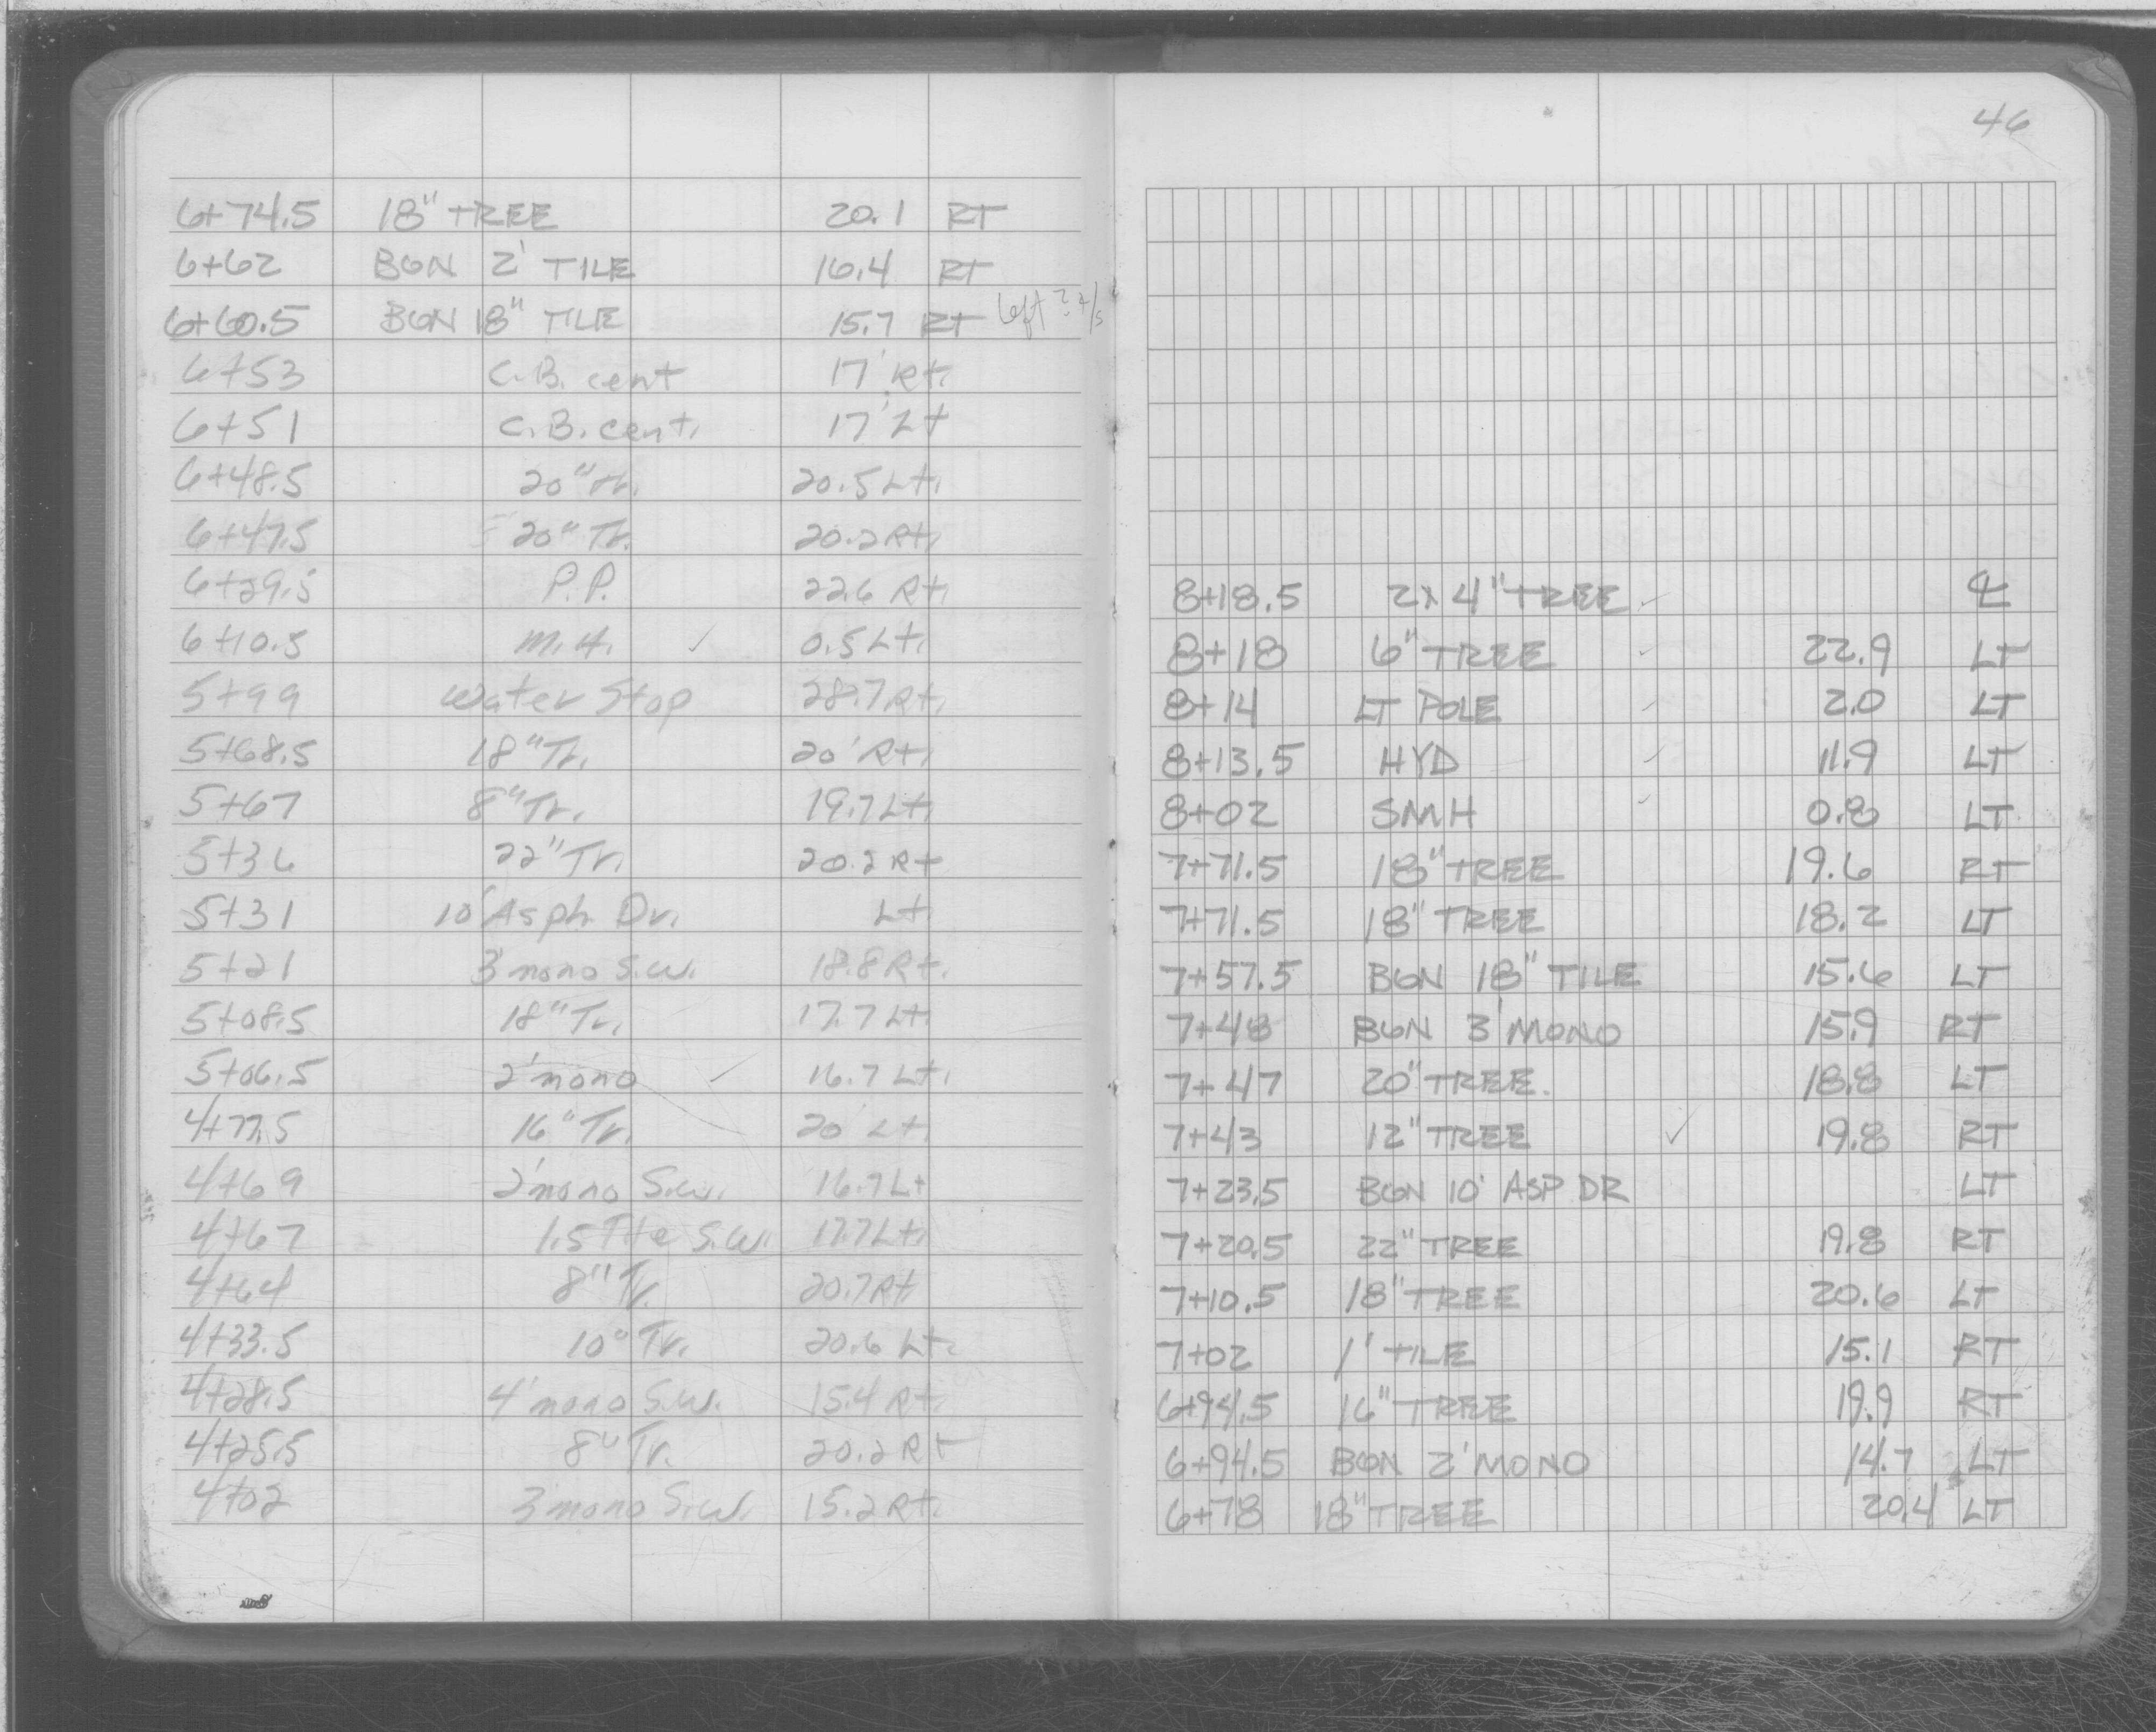 6+74.5 18" TREE 20.1 RT
6+62 BGN 2' TILE 16.4 RT
6+60.5 BGN 18" TILE 15.7 RT left ?
6+53 C.B. cent 17' Rt.
6+51 C.B. cent. 17' Lt
6+48.5 20" tr. 20.5 Lt.
6+47.5 20" Tr. 20.2 Rt.
6+29.5 P.P. 22.6 Rt.
6+10.5 M.H. ✓ 0.5 Lt.
5+99 Water Stop 28.7 Rt.
5+68.5 18" Tr. 20' Rt.
5+67 8" Tr. 19.7 Lt.
5+36 22" Tr. 20.2 Rt
5+31 10' Asph. Dr. Lt.
5+21 3' mono S.W. 18.8 Rt.
5+08.5 18" Tr. 17.7 Lt.
5+06.5 2' mono ✓ 16.7 Lt.
4+77.5 16" Tr. 20' Lt.
4+69 2' mono S.W. 16.7 Lt
4+67 1.5 Tile S.W. 17.7 Lt.
4+64 8" Tr. 20.7 Rt.
4+33.5 10" Tr. 20.6 Lt.
4+28.5 4' mono S.W. 15.4 Rt.
4+25.5 8" Tr. 20.2 Rt
4+02 3' mono S.W. 15.2 Rt.
46
8+18.5 2x4" TREE ✓ ℄
8+18 6" TREE ✓ 22.9 LT
8+14 LT POLE ✓ 2.0 LT
8+13.5 HYD ✓ 11.9 LT
8+02 SMH ✓ 0.8 LT
7+71.5 18" TREE 19.6 RT
7+71.5 18" TREE 18.2 LT
7+57.5 BGN 18" TILE 15.6 LT
7+48 BGN 3' MONO 15.9 RT
7+47 20" TREE. 18.8 LT
7+43 12" TREE ✓ 19.8 RT
7+23.5 BGN 10' ASP DR LT
7+20.5 22" TREE 19.8 RT
7+10.5 18" TREE 20.6 LT
7+02 1' TILE 15.1 RT
6+94.5 16" TREE 19.9 RT
6+94.5 BGN 2' MONO 14.7 LT
6+78 18" TREE 20.4 LT